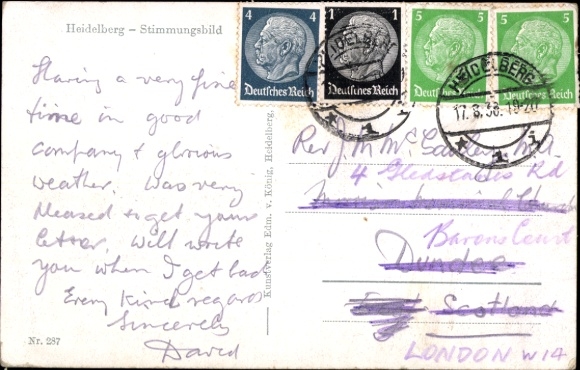 Heidelberg – Stimmungsbild
4 4
Deutsches Reich
1 1
Deutsches Reich
5 5
Deutsches Reich
5 5
Deutsches Reich
HEIDELBERG
1
HEIDELBERG
17.8.36.19-20
1
Having a very fine
time in good
company & glorious
weather. Was very
pleased to get your
letter. Will write
you when I get back
Every kind regards
Sincerely
David
Nr. 287
Kunstverlag Edm. v. König, Heidelberg.
Rev J. M. Mc M.A.
4 Gledstanes Rd
Church
Barons Court
Dundee
Scotland
LONDON W14